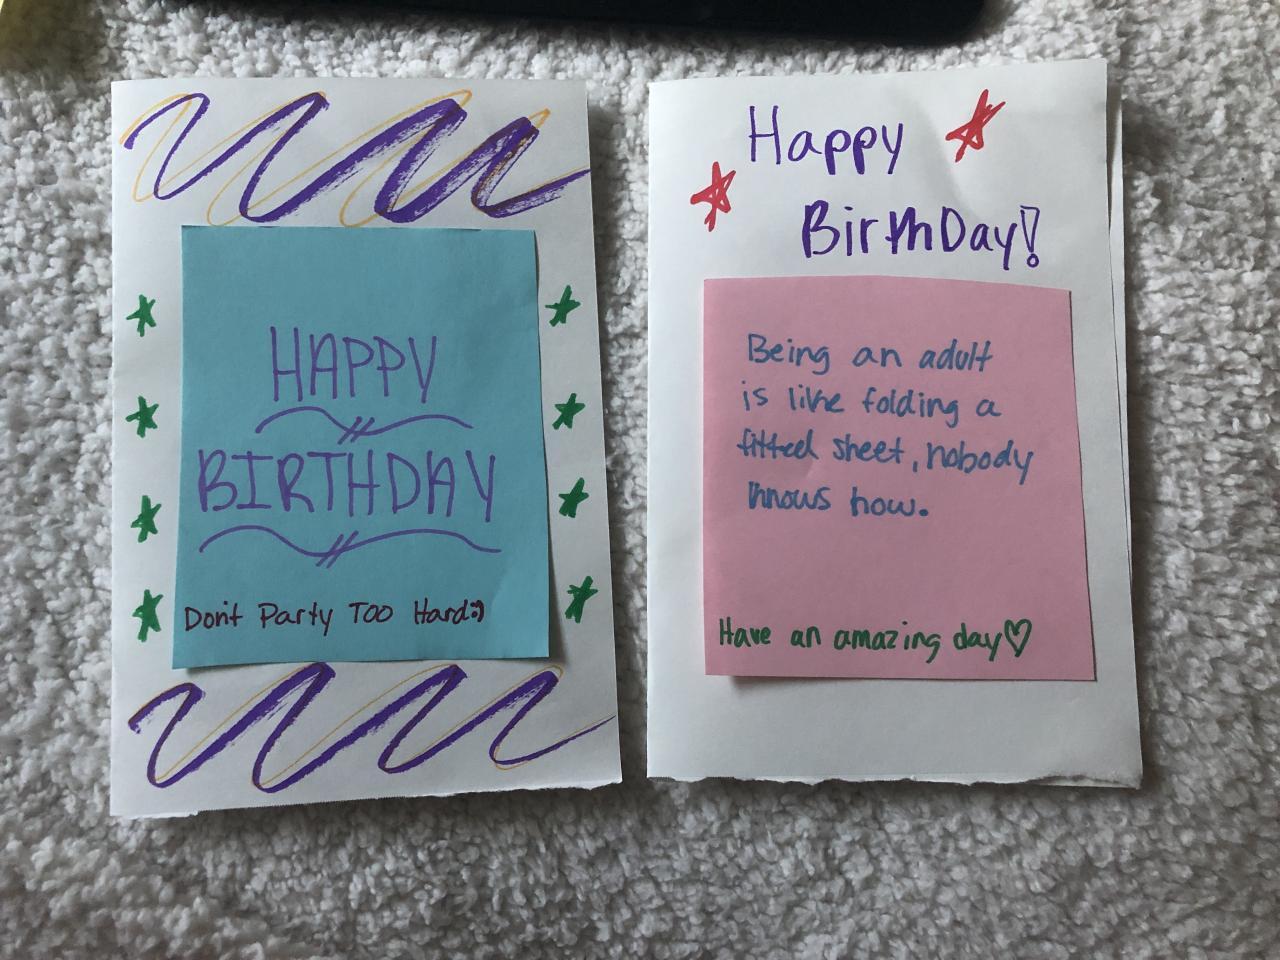 HAPPY
BIRTHDAY
Don't Party Too Hard:)
Happy
BirthDay!
Being an adult
is like folding a
fitted sheet, nobody
knows how.
Have an amazing day♡